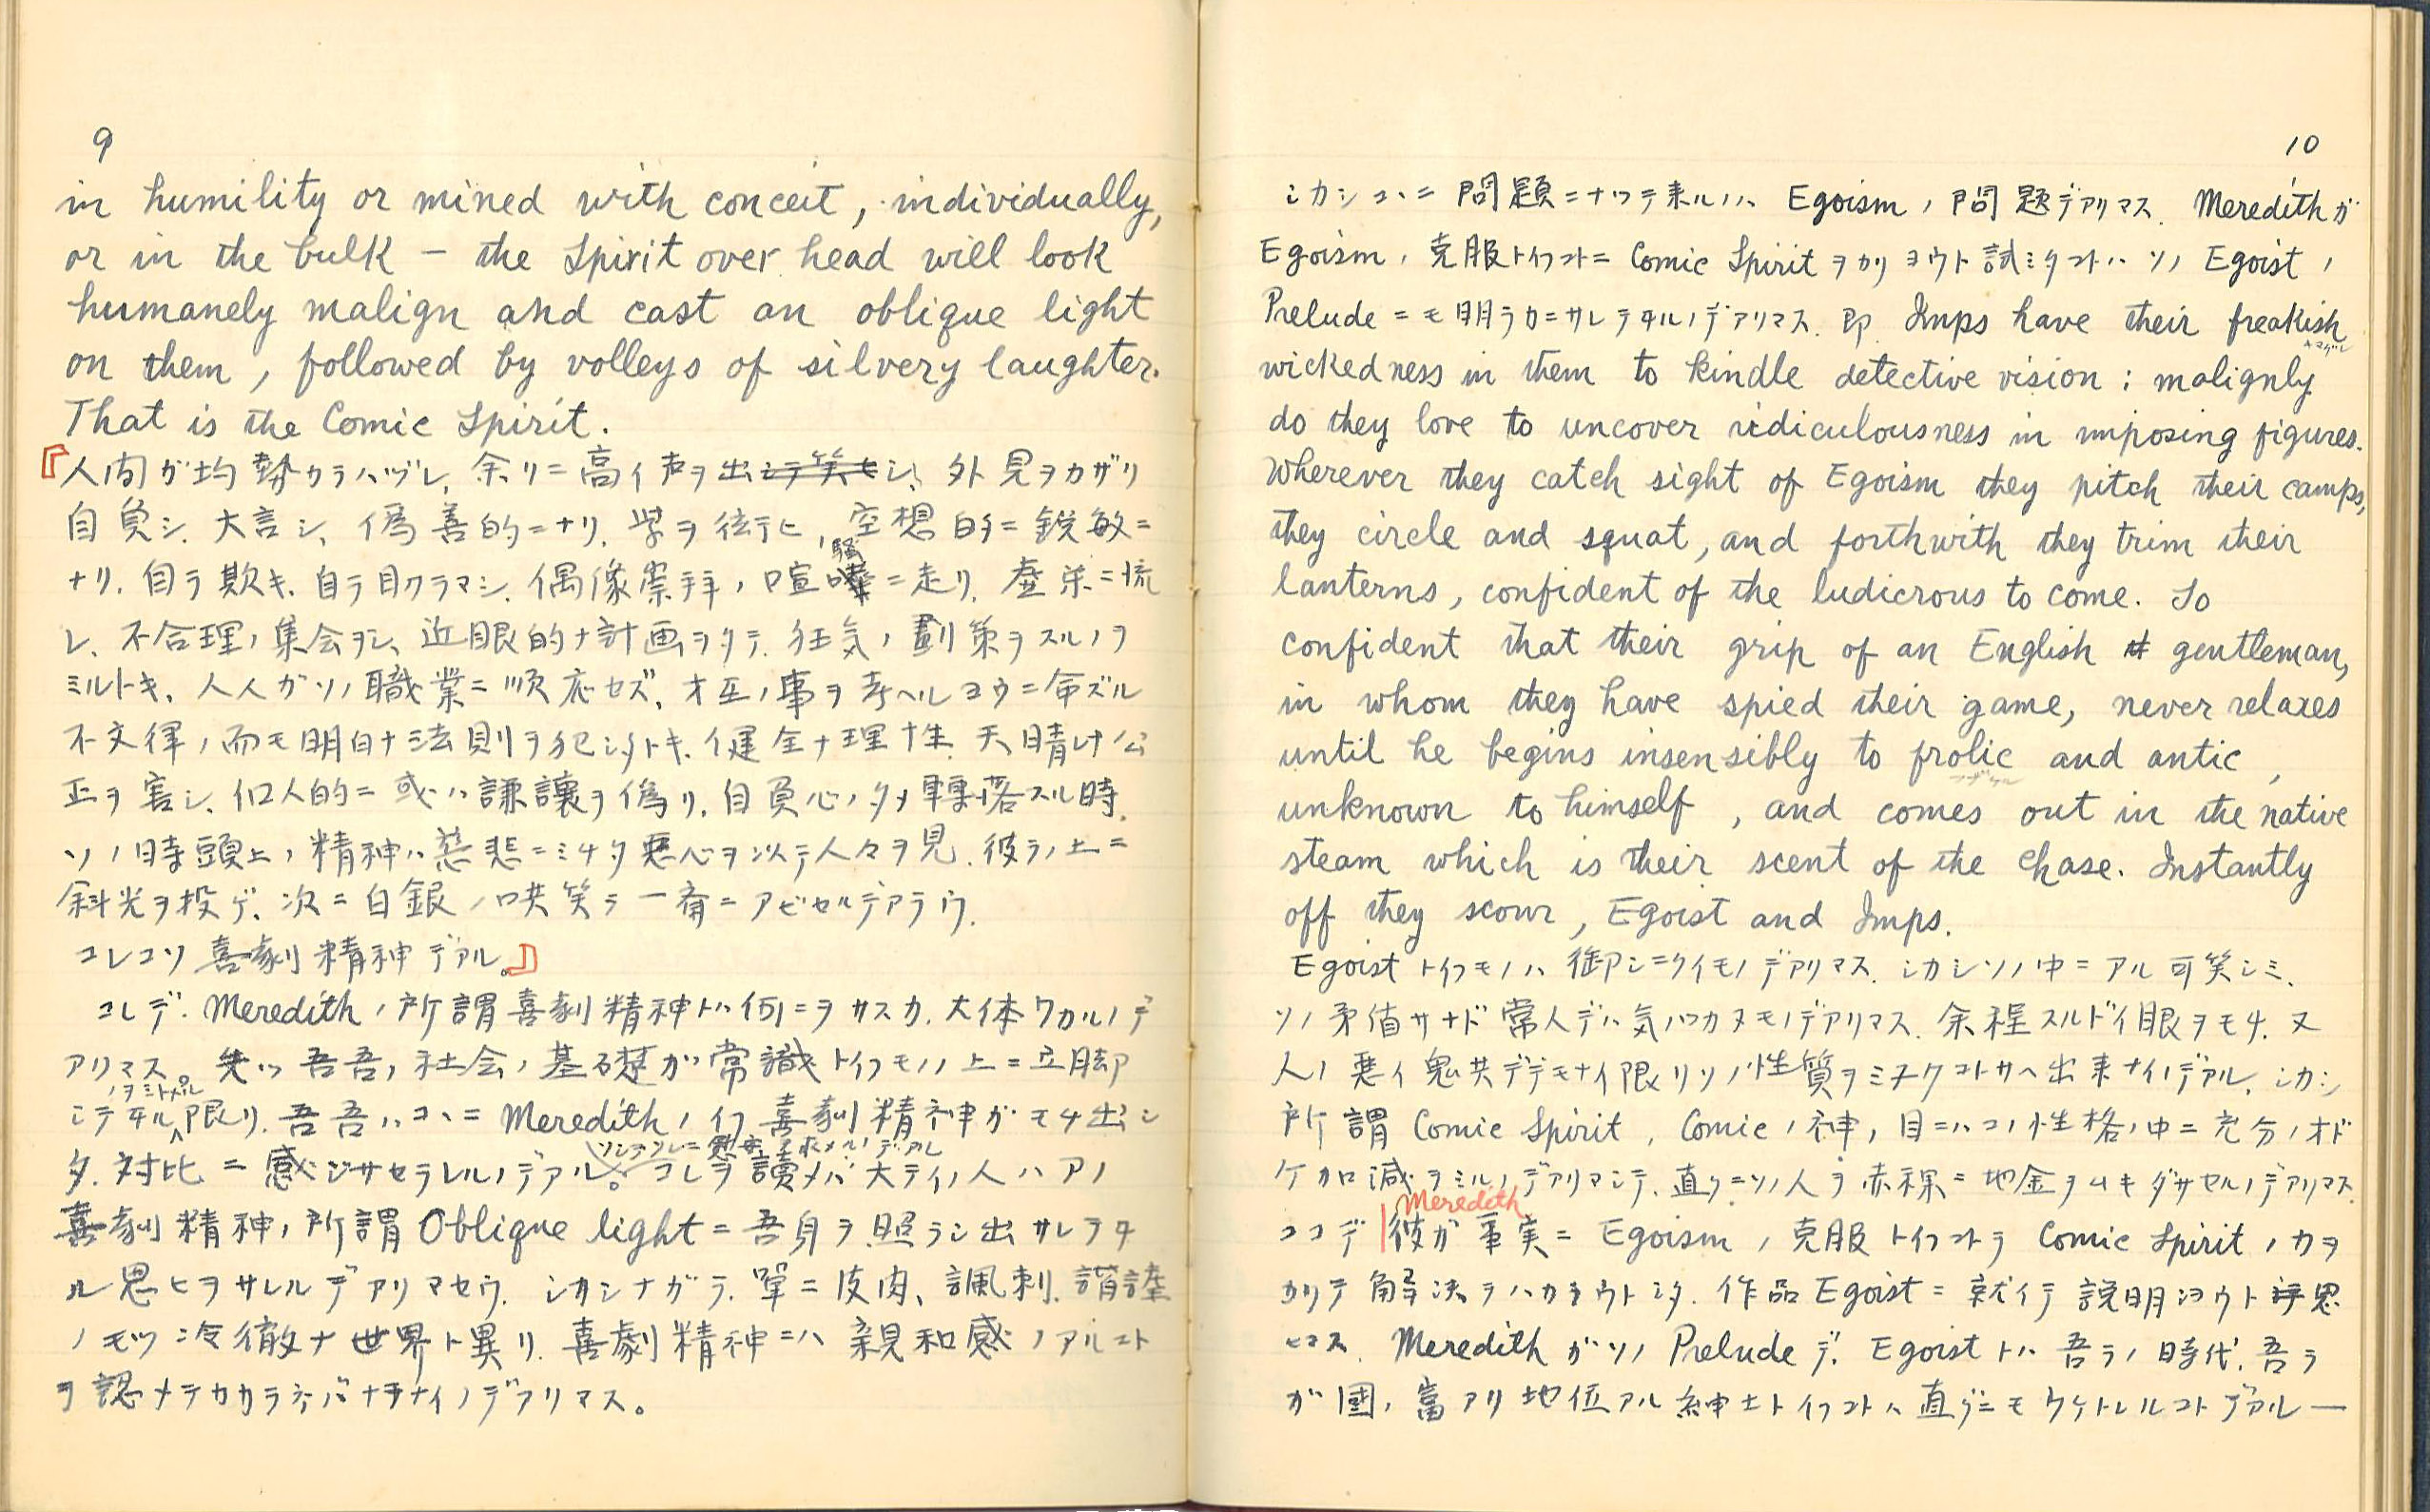 9
in humility or mined with conceit, individually,
or in the bulk — the Spirit over head will look
humanely malign and cast an oblique light
on them, followed by volleys of silvery laughter.
That is the Comic Spirit.
『人間ガ均勢カラハヅレ、余リニ高イ声ヲ出シ、外見ヲカザリ
自負シ、大言シ、偽善的ニナリ、学ヲ衒ヒ、空想的ニ鋭敏ニ
ナリ、自ラ欺キ、自ラ目クラマシ、偶像崇拝ノ喧騒ニ走リ、虚栄ニ流
レ、不合理ノ集会ヲシ、近眼的ナ計画ヲタテ、狂気ノ劃策ヲスルノヲ
ミルトキ、人人ガソノ職業ニ順応セズ、オ互ノ事ヲ考ヘルヨウニ命ズル
不文律ノ而モ明白ナ法則ヲ犯シタトキ、健全ナ理性、天晴レナ公
正ヲ害シ、個人的ニ或ハ謙譲ヲ偽リ、自負心ノタメ轉落スル時、
ソノ時頭上ノ精神ハ慈悲ニミチタ悪心ヲ以テ人々ヲ見、彼ラノ上ニ
斜光ヲ投ゲ、次ニ白銀ノ哄笑ヲ一斉ニアビセルデアラウ。
コレコソ喜劇精神デアル。』
コレデ、Meredithノ所謂喜劇精神トハ何ヲサスカ、大体ワカルノデ
アリマス。先ヅ吾吾ノ社会ノ基礎ガ常識トイフモノノ上ニ立脚
シテヰルノヲミトメル限リ、吾吾ハコヽニMeredithノイフ喜劇精神ガモチ出シ
タ対比ニ感ジサセラレルノデアル。コレヲ讀メバ大テイノ人ハアノ
喜劇精神ノ所謂Oblique lightニ吾身ヲ照ラシ出サレテヰ
ル思ヒヲサレルデアリマセウ。シカシナガラ、單ニ皮肉、諷刺、諧謔
ノモツ冷徹ナ世界ト異リ、喜劇精神ニハ親和感ノアルコト
ヲ認メテカカラネバナラナイノデアリマス。
10
シカシコヽニ問題ニナツテ来ルノハ Egoismノ問題デアリマス。Meredithガ
Egoismノ克服トイフコトニ Comic Spiritヲカリヨウト試ミタコトハソノ Egoistノ
Preludeニモ明ラカニサレテヰルノデアリマス。即 Imps have their freakish
wickedness in them to kindle detective vision : malignly
do they love to uncover ridiculousness in imposing figures.
Wherever they catch sight of Egoism they pitch their camps,
they circle and squat, and forthwith they trim their
lanterns, confident of the ludicrous to come. So
confident that their grip of an English gentleman,
in whom they have spied their game, never relaxes
until he begins insensibly to frolic and antic,
unknown to himself, and comes out in the native
steam which is their scent of the chase. Instantly
off they scour, Egoist and Imps.
Egoistトイフモノハ御シニクイモノデアリマス。シカシソノ中ニアル可笑シミ、
ソノ矛値サナド常人デハ気ハツカヌモノデアリマス。余程スルドイ眼ヲモチ、又
人ノ悪イ鬼共デデモナイ限リソノ性質ヲミヌクコトサヘ出来ナイノデアル。シカシ
所謂 Comic Spirit, Comicノ神ノ目ニハコノ性格ノ中ニ充分ノオド
ケ加減ヲミルノデアリマシテ、直グニソノ人ヲ赤裸ニ地金ヲムキダサセルノデアリマス。
ココデ彼ガ Meredith 事実ニ Egoismノ克服トイフコトヲ Comic Spiritノ力ヲ
カリテ解決ヲハカラウトシタ、作品 Egoistニ就イテ説明シヨウト思
ヒマス。MeredithガソノPreludeデ、Egoistトハ吾ラノ時代、吾ラ
ガ國ノ富アリ地位アル紳士トイフコトハ直グニモウケトレルコトデアル—